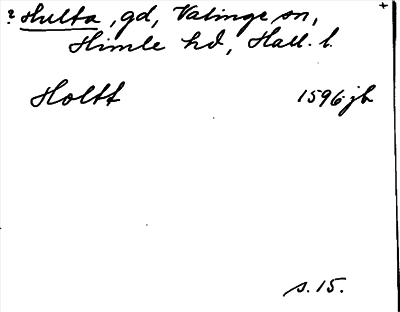 ? Hulta, gd, Valinge sn, +
Himle hd, Hall. l.
Holtt 1596 jb
s. 15.